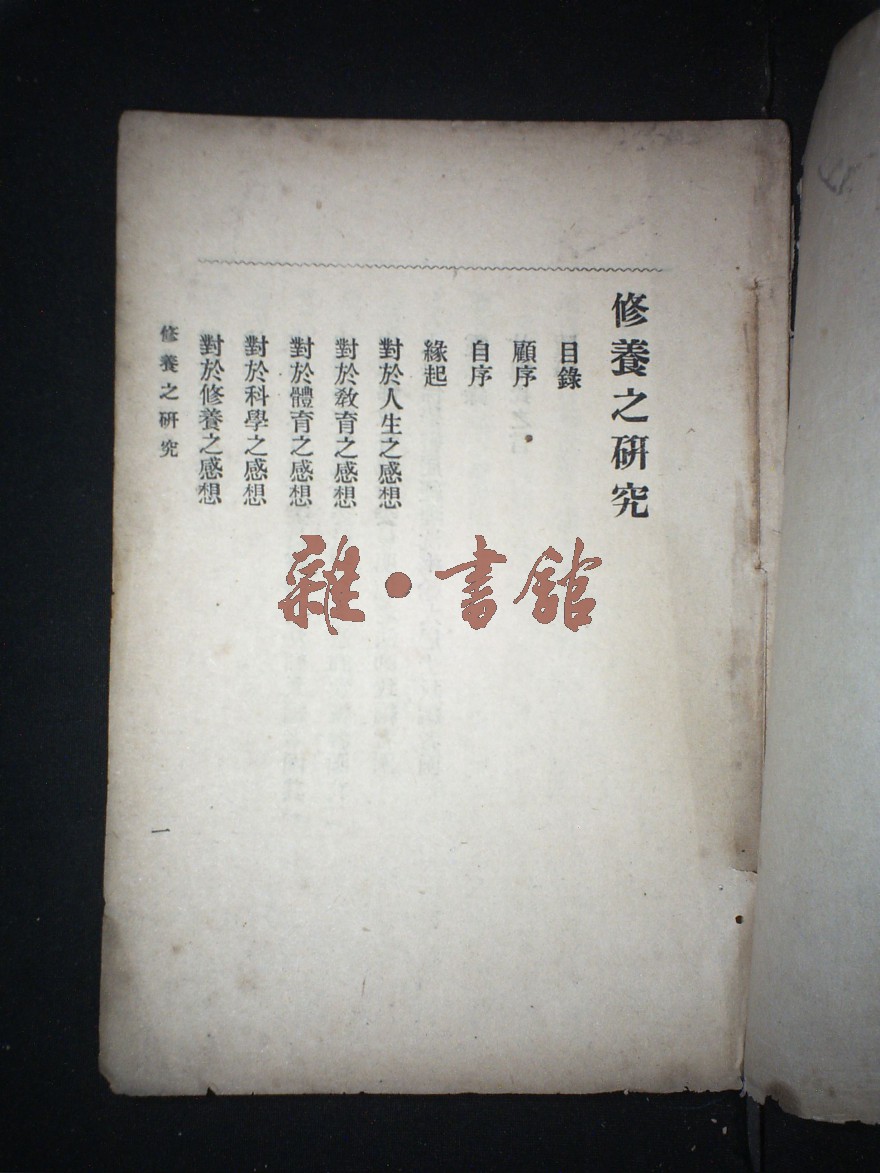 修養之研究
目錄
顧序
自序
緣起
對於人生之感想
對於教育之感想
對於體育之感想
對於科學之感想
對於修養之感想
修養之研究
一
雜·書館